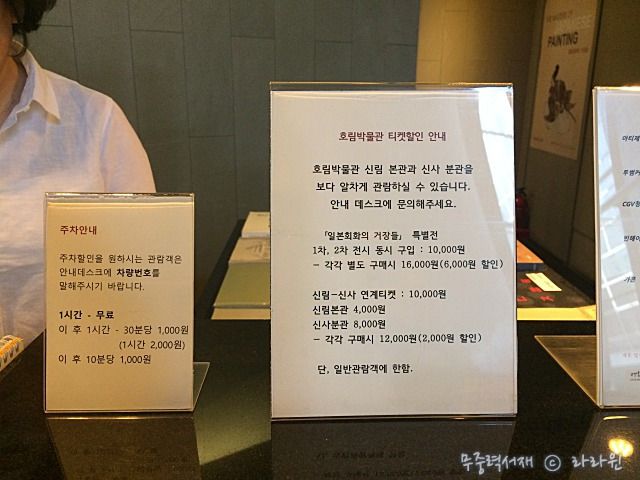 주차안내
주차할인을 원하시는 관람객은
안내데스크에 차량번호를
말해주시기 바랍니다.
1시간 - 무료
이 후 1시간 - 30분당 1,000원
(1시간 2,000원)
이 후 10분당 1,000원
호림박물관 티켓할인 안내
호림박물관 신림 본관과 신사 분관을
보다 알차게 관람하실 수 있습니다.
안내 데스크에 문의해주세요.
「일본회화의 거장들」 특별전
1차, 2차 전시 동시 구입 : 10,000원
- 각각 별도 구매시 16,000원(6,000원 할인)
신림-신사 연계티켓 : 10,000원
신림본관 4,000원
신사분관 8,000원
- 각각 구매시 12,000원(2,000원 할인)
단, 일반관람객에 한함.
PAINTING
무중력서재 ⓒ 라라윈